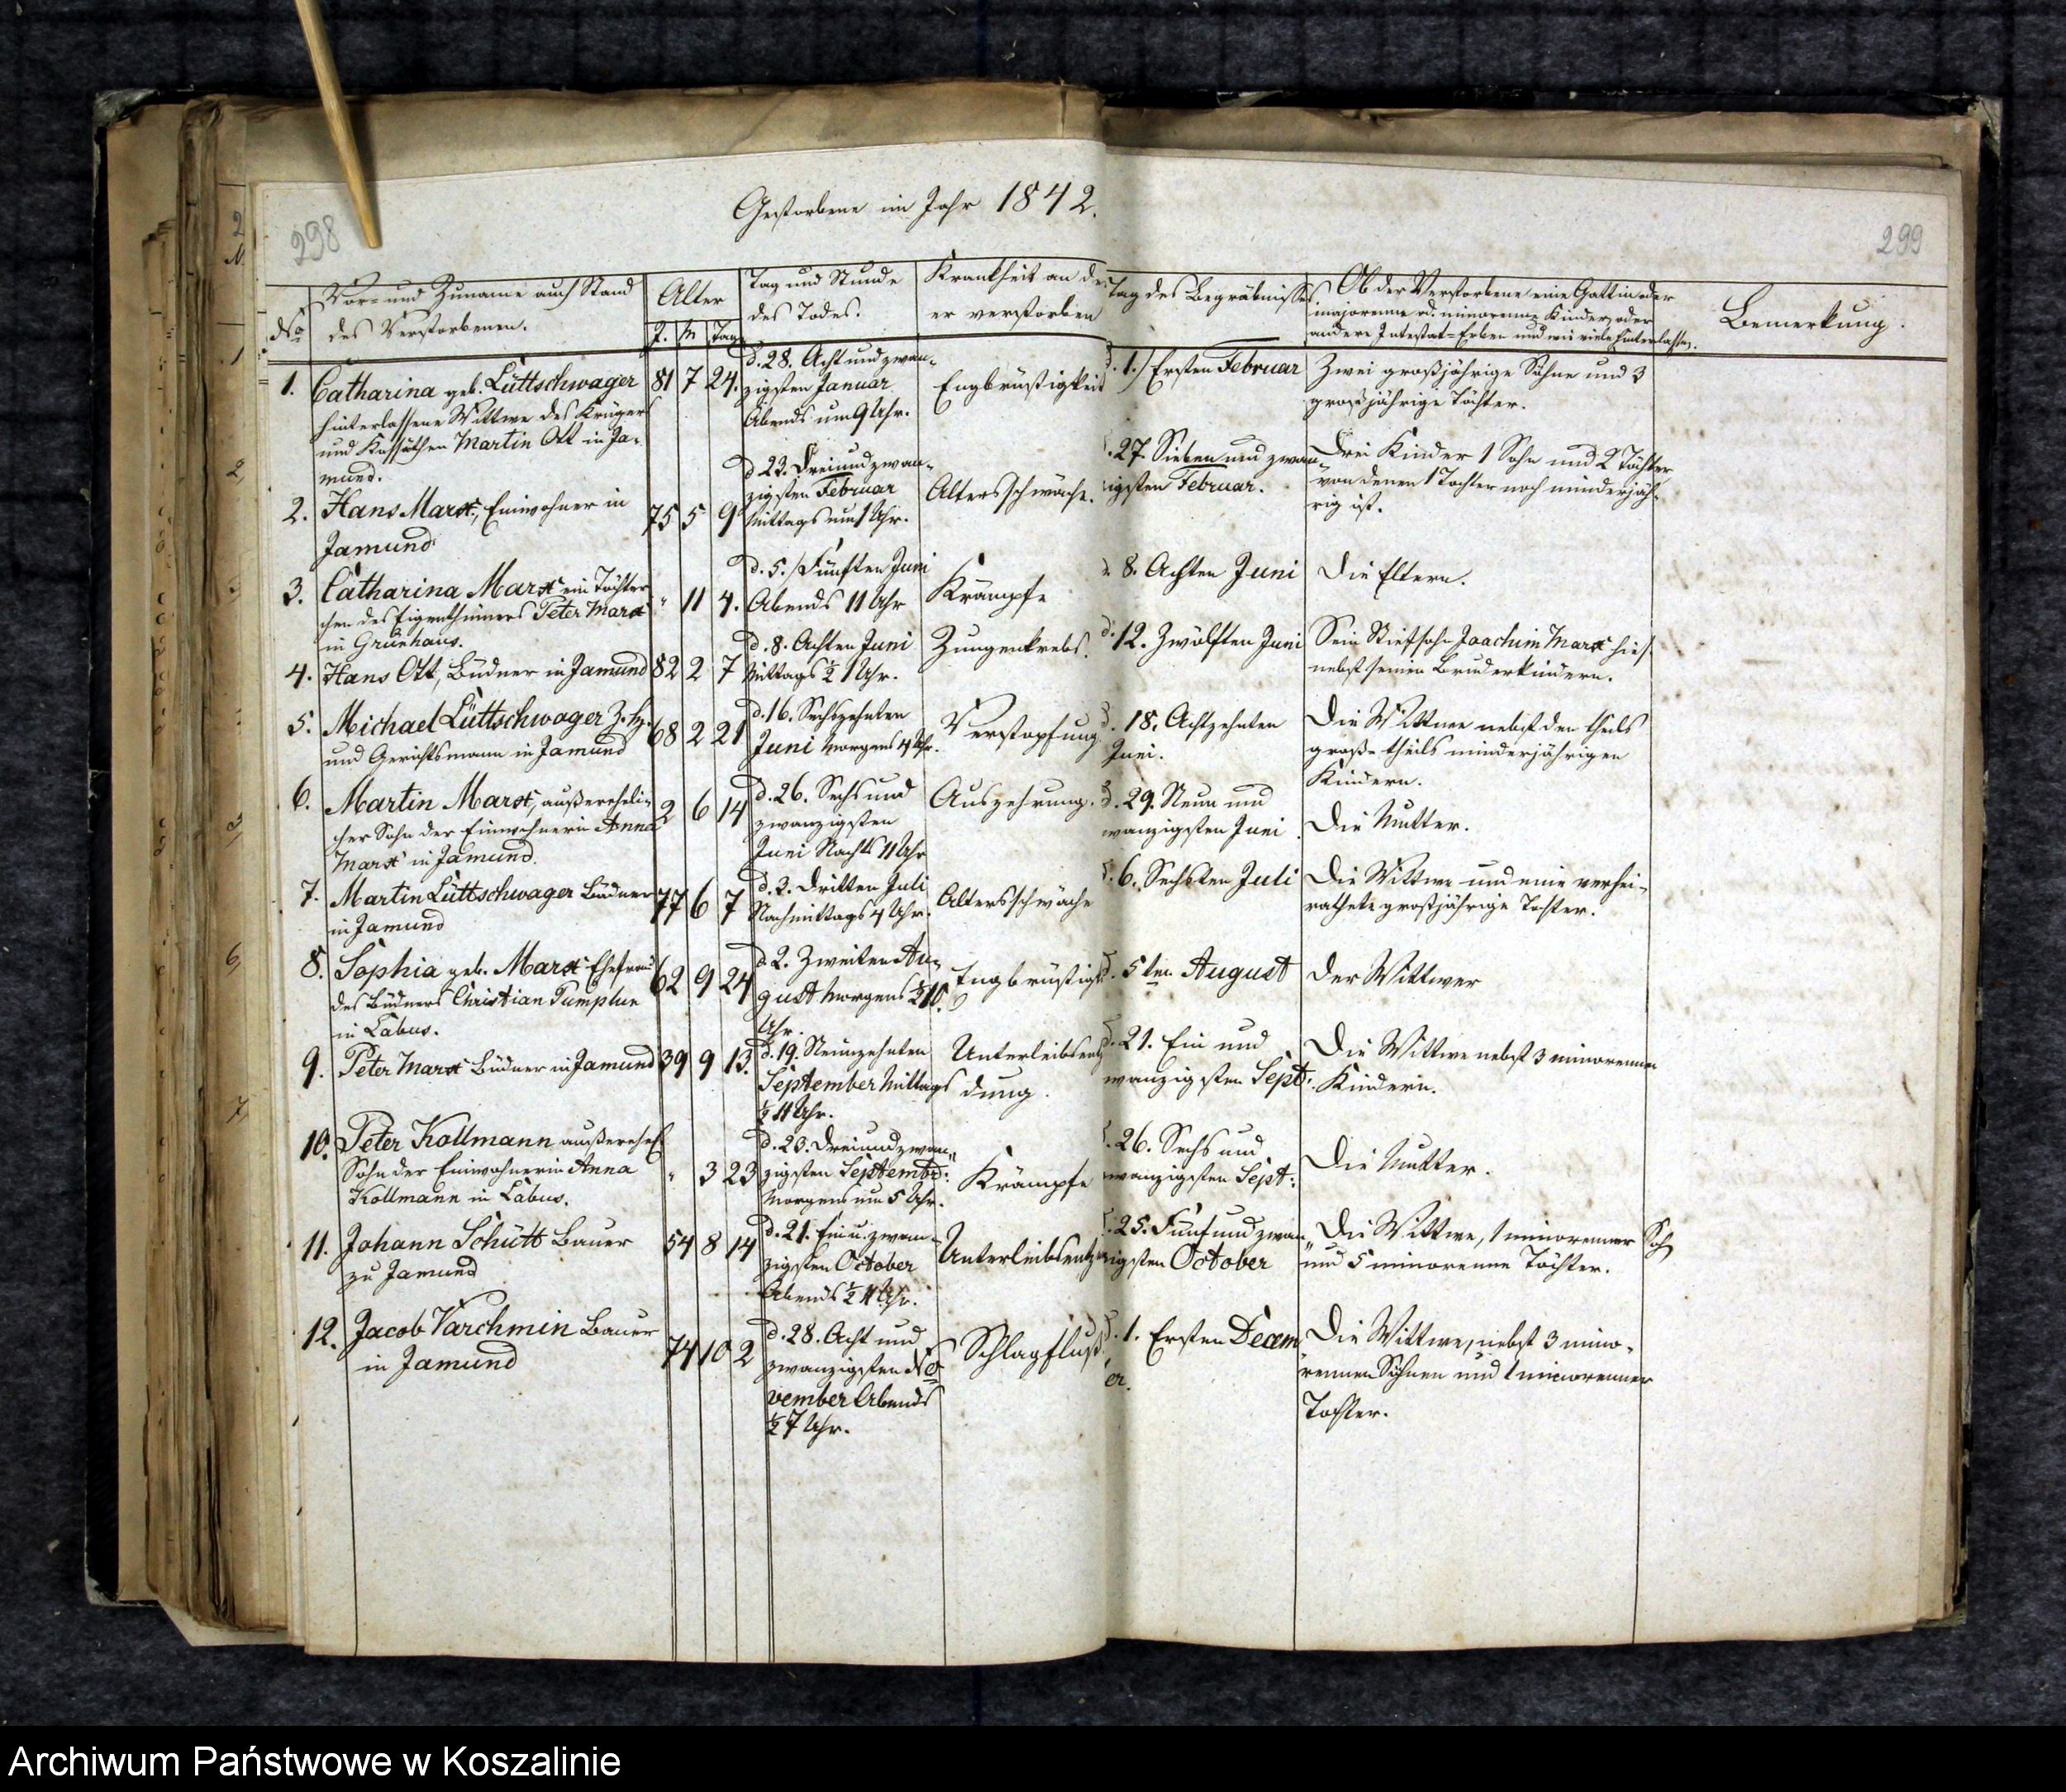 298
Gestorbene im Jahr 1842.
299
No
Vor- und Zuname auch Stand
des Verstorbenen.
Alter
J. M Tag
Tag und Stunde
des Todes.
Krankheit an der
er verstorben
Tag des Begräbnisses
Ob der Verstorbene eine Gattin oder
majorenne od. minorenne Kinder, oder
andere Intestat-Erben und wie viele hinterlassen.
Bemerkung.
1.
Catharina geb. Lüttschwager
hinterlassene Wittwe des Krüger
und Kossäthen Martin Ott in Ja-
mund.
81 7 24.
d. 28. Acht und zwan-
zigsten Januar
Abends um 9 Uhr.
Engbrüstigkeit
d. 1./ Ersten Februar
Zwei großjährige Söhne und 3
großjährige Töchter.
2.
Hans Marx, Einwohner in
Jamund
75 5 9
d 23. Dreiundzwan-
zigsten Februar
Mittags um 1 Uhr.
Altersschwäche.
27. Sieben und zwan-
igsten Februar.
Drei Kinder 1 Sohn und 2 Töchter
von denen 1 Tochter noch minderjäh-
rig ist.
3.
Catharina Marx ein Töchter
chen des Eigenthümers Peter Marx
in Grünhaus.
" 11 4.
d. 5./ Fünften Juni
Abends 11 Uhr
Krämpfe
8. Achten Juni
Die Eltern.
4.
Hans Ott, Büdner in Jamund
82 2 7
d. 8. Achten Juni
Mittags ½ 1 Uhr.
Zungenkrebs.
d. 12. Zwölften Juni
Sein Stiefsohn Joachim Marx hies
nebst seinen Bruderkindern.
5.
Michael Lüttschwager
und Gerichtsmann in Jamund
68 2 21
d. 16. Sechszehnten
Juni Morgens 4 Uhr.
Verstopfung
d. 18. Achtzehnten
Juni.
Die Wittwe nebst den theils
groß- theils minderjährigen
Kindern.
6.
Martin Marx, außereheli-
cher Sohn der Einwohnerin Anna
Marx in Jamund.
2 6 14
d. 26. Sechs und
zwanzigsten
Juni Nachts 11 Uhr
Auszehrung.
d. 29. Neun und
wanzigsten Juni
Die Mutter.
7.
Martin Lüttschwager Büdner
in Jamund
77 6 7
d. 3. Dritten Juli
Nachmittags 4 Uhr.
Altersschwäche
6. Sechsten Juli
Die Wittwe und eine verhei-
rathete großjährige Tochter.
8.
Sophia geb. Marx Ehefrau
des Büdners Christian Pumplun
in Labus.
62 9 24
d 2. Zweiten Au-
gust Morgens ½ 10.
Uhr.
Engbrüstigk
d. 5ten August
Der Wittwer
9.
Peter Marx Büdner in Jamund
39 9 13.
d. 19. Neunzehnten
September Mittags
½ 11 Uhr.
Unterleibsentz
dung.
d. 21. Ein und
wanzigsten Sept:
Die Wittwe nebst 3 minorennen
Kindern.
10.
Peter Kollmann außerehel
Sohn der Einwohnerin Anna
Kollmann in Labus.
" 3 23
d. 23. Dreiundzwan-
zigsten Septembr:
Morgens um 5 Uhr.
Krämpfe
26. Sechs und
wanzigsten Sept:
Die Mutter.
11.
Johann Schütt Bauer
zu Jamund
54 8 14
d. 21. Ein u. zwan-
zigsten October
Abends ½ 11 Uhr.
Unterleibsentz
25. Fünf und zwan-
igsten October
Die Wittwe, 1 minorenner Soh
und 5 minorenne Töchter.
12.
Jacob Varchmin Bauer
in Jamund
74 10 2
d. 28. Acht und
zwanzigsten No
vember Abends
½ 7 Uhr.
Schlagfluß
d. 1. Ersten Decem
er.
Die Wittwe, nebst 3 mino-
rennen Söhnen und 1 minorenner
Tochter.
Archiwum Państwowe w Koszalinie